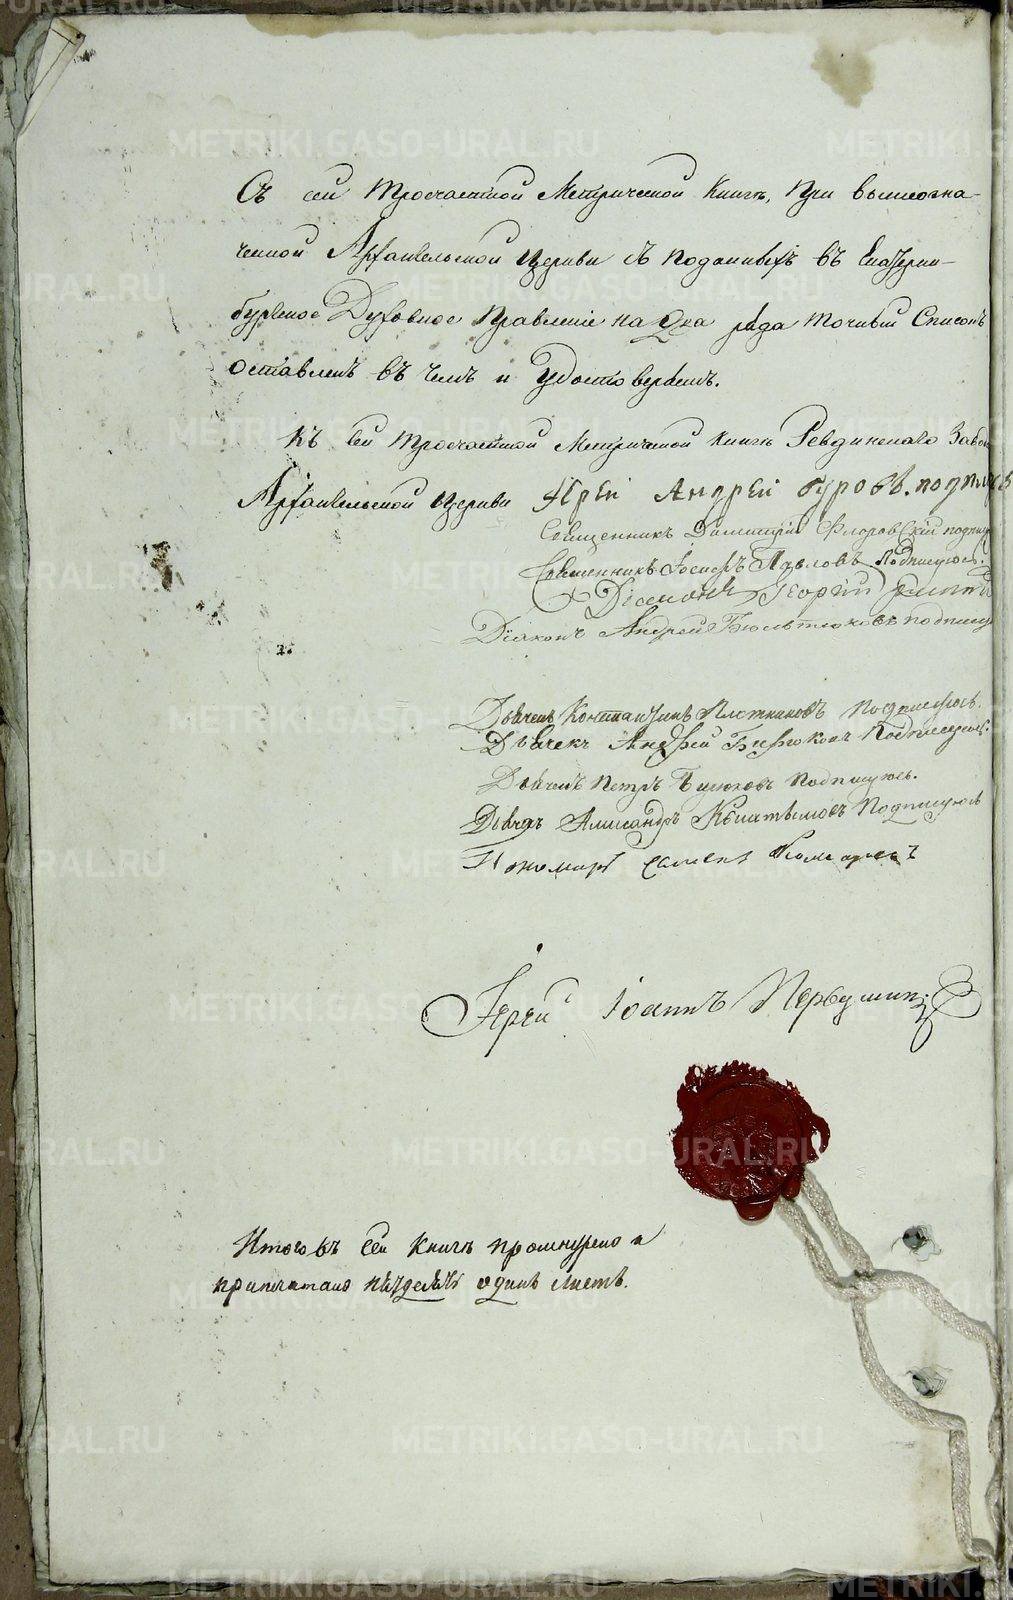 Съ сей троечастной Метрической Книги, при вышеозна-
ченной Архангельской Церкви съ поданныхъ въ Екатерин-
бургское Духовное Правленіе на два рода точный Списокъ
оставленъ въ чемъ и удостоверяемъ.
Къ сей троечастной Метрической книге Ревдинскаго Завода
Архангельской Церкви Іерей Андрей Буровъ. подпи
Священникъ Димитрій Флоровскій подпи
Священникъ Іосифъ Павловъ Подписуюсь.
Діаконъ Георгій
Діаконъ Андрей подпису
Дьячекъ Константинъ Плотниковъ Подписуюсь.
Дьячекъ Андрей Бирюковъ Подписуюсь.
Дьячекъ Петръ Бирюковъ Подписуюсь.
Дьячекъ Александръ Подписуюсь
Пономарь Семенъ
Іерей Іоаннъ Первушинъ
Итого въ сей Книге прошнурено и
припечатано пятьдесятъ одинъ листъ.
METRIKI.GASO-URAL.RU